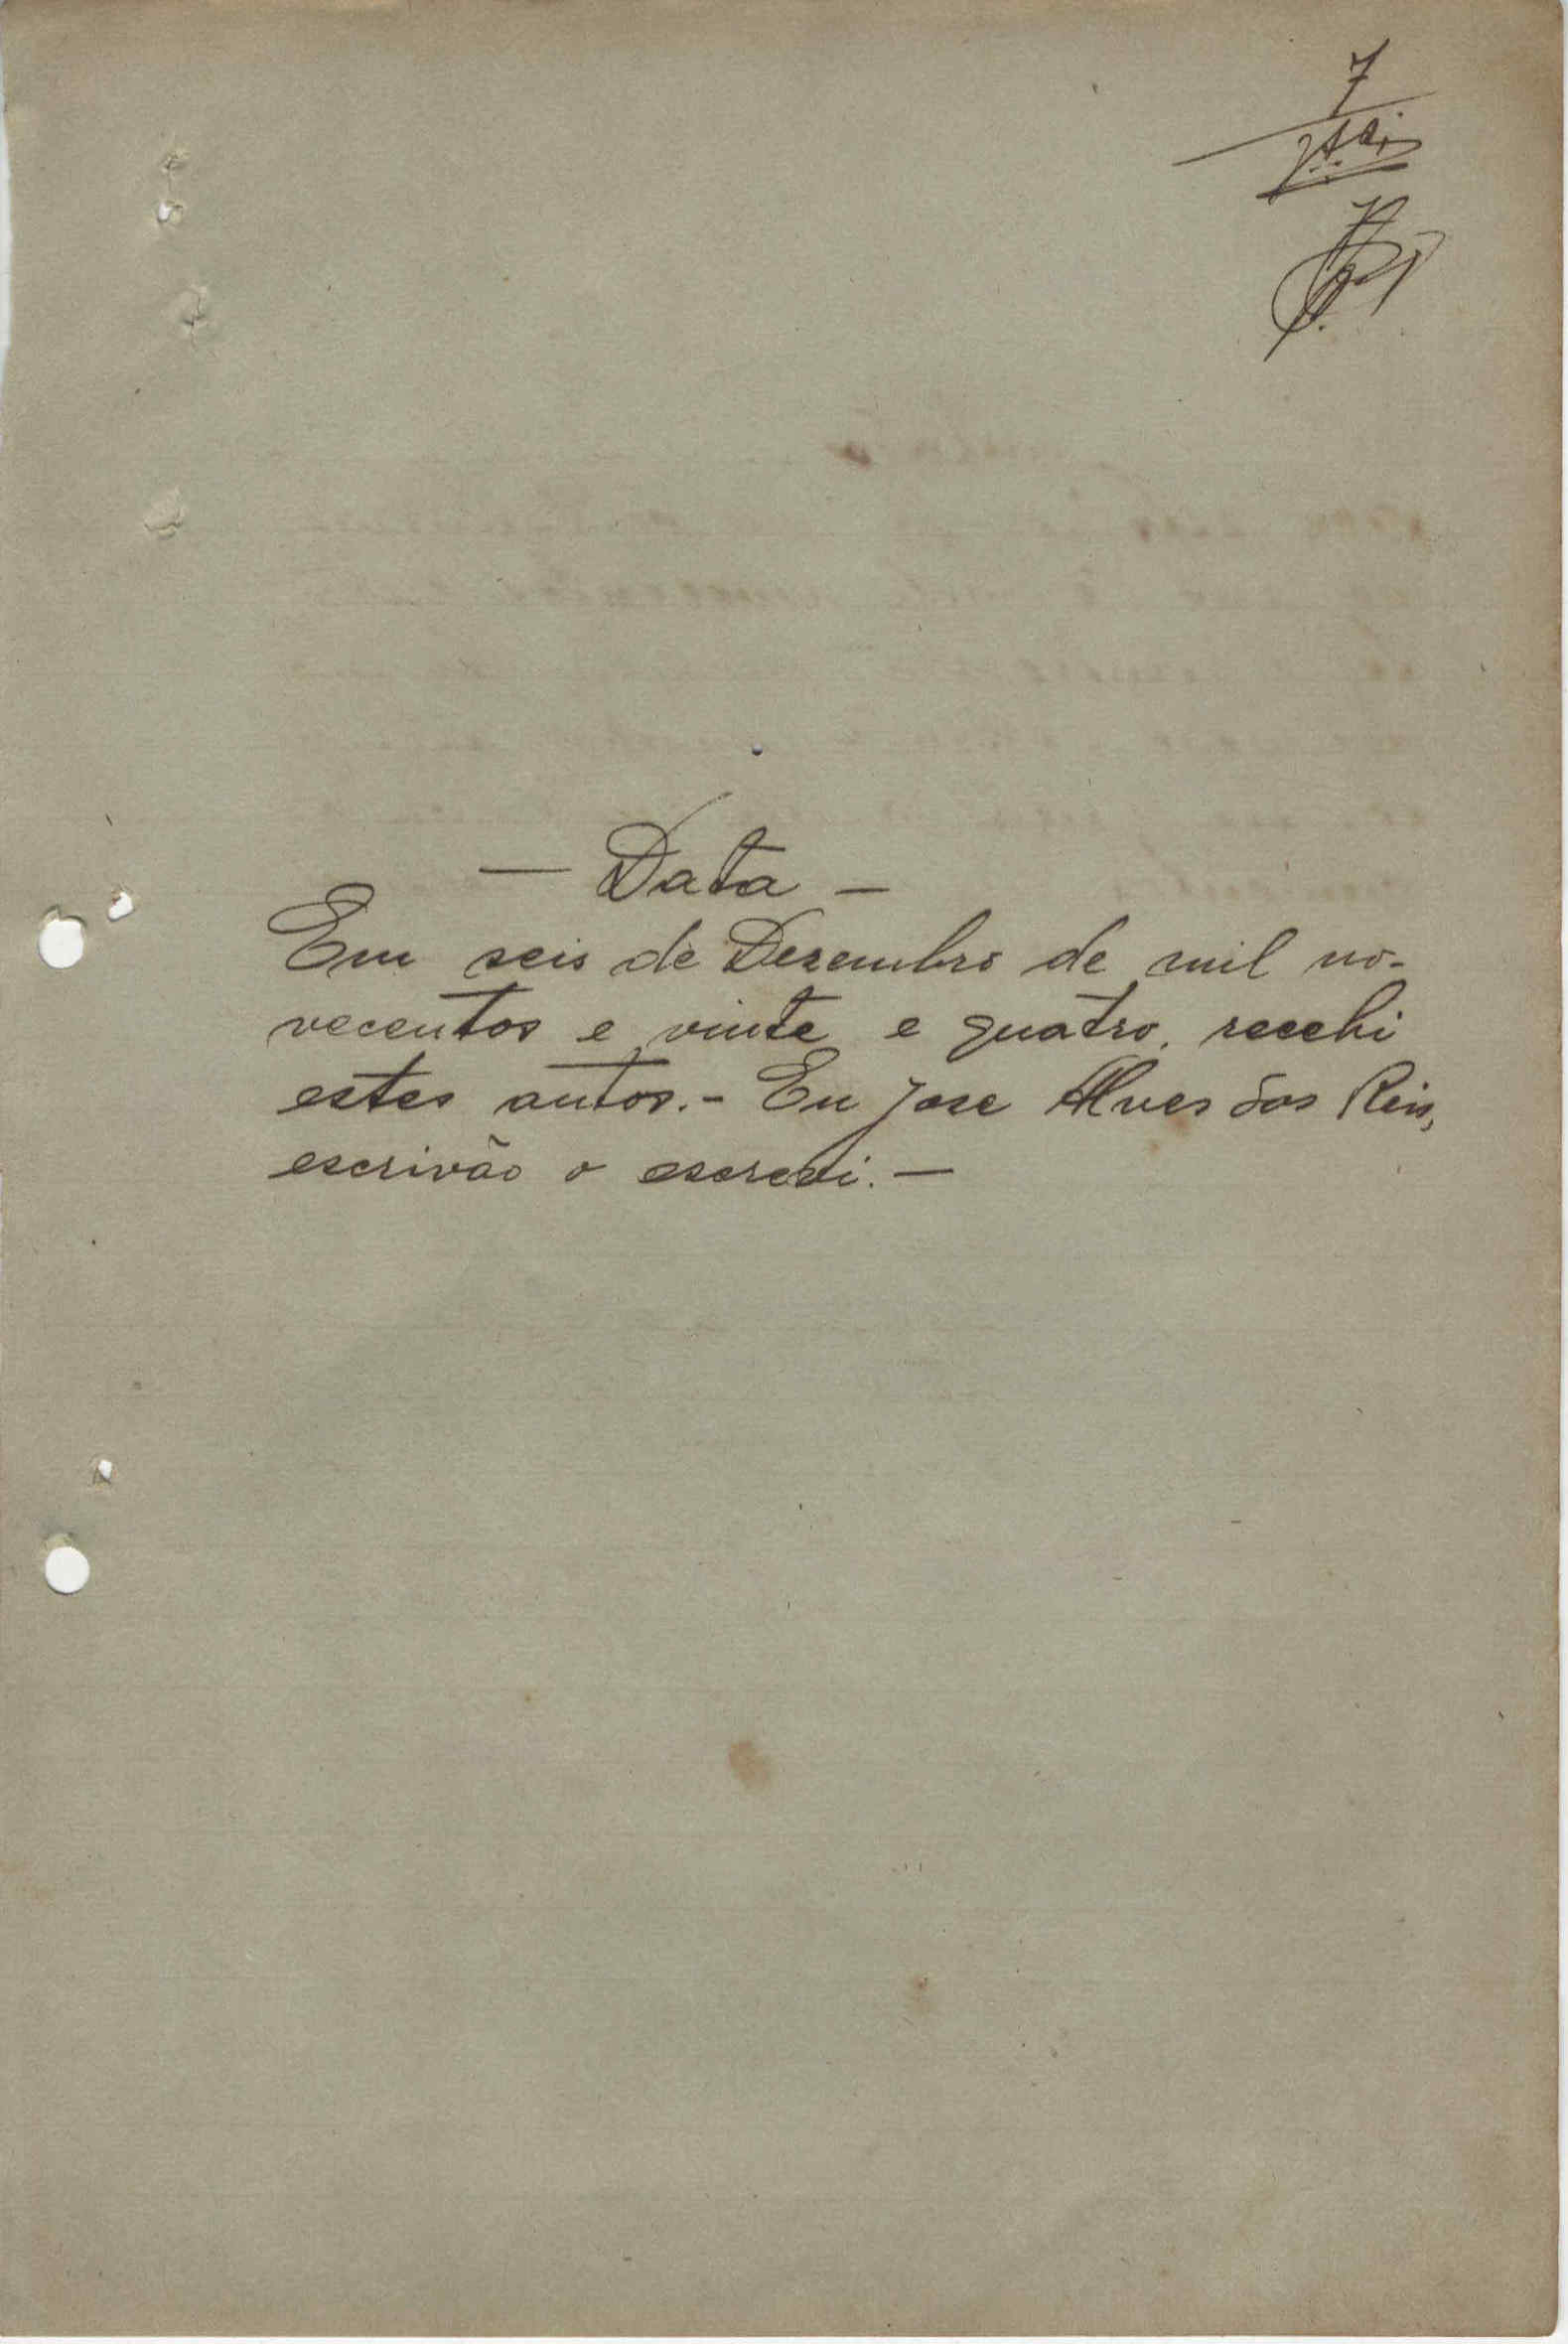 7
— Data —
Em seis de Dezembro de mil no-
vecentos e vinte e quatro, recebi
estes autos.- Eu Jose Alves dos Reis,
escrivão o escrevi. —